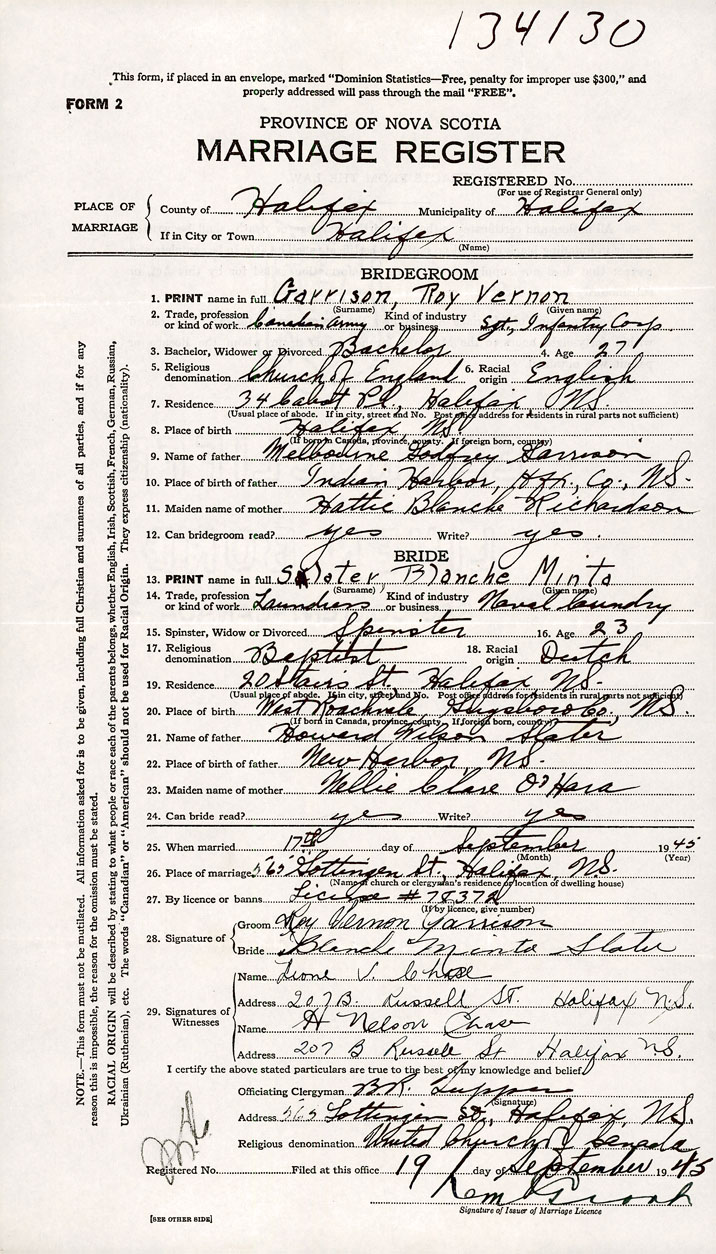 134130
This form, if placed in an envelope, marked "Dominion Statistics—Free, penalty for improper use $300," and
properly addressed will pass through the mail "FREE".
FORM 2
PROVINCE OF NOVA SCOTIA
MARRIAGE REGISTER
REGISTERED No.
(For use of Registrar General only)
PLACE OF MARRIAGE
County of Halifax Municipality of Halifax
If in City or Town Halifax
(Name)
BRIDEGROOM
1. PRINT name in full Garrison, Roy Vernon
(Surname) (Given name)
2. Trade, profession or kind of work Canadian Army Kind of industry or business Sgt, Infantry Corp
3. Bachelor, Widower or Divorced Bachelor 4. Age 27
5. Religious denomination Church of England 6. Racial origin English
7. Residence 34 Cabot Pl., Halifax, N.S.
(Usual place of abode. If in city, street and No. Post office address for residents in rural parts not suffice)
8. Place of birth Halifax N.S.
(If born in Canada, province, county. If foreign born, country)
9. Name of father Melbourne Godfrey Garrison
10. Place of birth of father Indian Harbor, Hfx. Co., N.S.
11. Maiden name of mother Hattie Blanche Richardson
12. Can bridegroom read? yes Write? yes.
BRIDE
13. PRINT name in full Slater Blanche Minta
(Surname) (Given name)
14. Trade, profession or kind of work Laundress Kind of industry or business Naval Laundry
15. Spinster, Widow or Divorced Spinster 16. Age 23
17. Religious denomination Baptist 18. Racial origin Dutch
19. Residence 20 Stairs St. Halifax N.S.
(Usual place of abode. If in city, street and No. Post office address for residents in rural parts not sufficient)
20. Place of birth West Co., N.S.
(If born in Canada, province, county. If foreign born, country)
21. Name of father Howard Wilson Slater
22. Place of birth of father New Harbor, N.S.
23. Maiden name of mother Nellie Clare O'Hara
24. Can bride read? yes Write? yes
25. When married 17th day of September 1945
(Month) (Year)
26. Place of marriage 565 Gottingen St., Halifax, N.S.
(Name of church or clergyman's residence or location of dwelling house)
27. By licence or banns License # 78372
(If by licence, give number)
28. Signature of
Groom Roy Vernon Garrison
Bride Blanche Minta Slater
29. Signatures of Witnesses
Name Leone V. Chase
Address 207 B. Russell St. Halifax N.S.
Name H Nelson Chase
Address 207 B Russell St Halifax N.S.
I certify the above stated particulars are true to the best of my knowledge and belief.
Officiating Clergyman
(Signature)
Address 565 Gottingen St., Halifax, N.S.
Religious denomination United Church of Canada
Registered No. Filed at this office 19 day of September 1945
Signature of Issuer of Marriage Licence
[SEE OTHER SIDE]
NOTE.—This form must not be mutilated. All information asked for is to be given, including full Christian and surnames of all parties, and if for any
reason this is impossible, the reason for the omission must be stated.
RACIAL ORIGIN will be described by stating to what people or race each of the parents belongs, whether English, Irish, Scottish, French, German, Russian,
Ukrainian (Ruthenian), etc. The words "Canadian" or "American" should not be used for Racial Origin. They express citizenship (nationality).